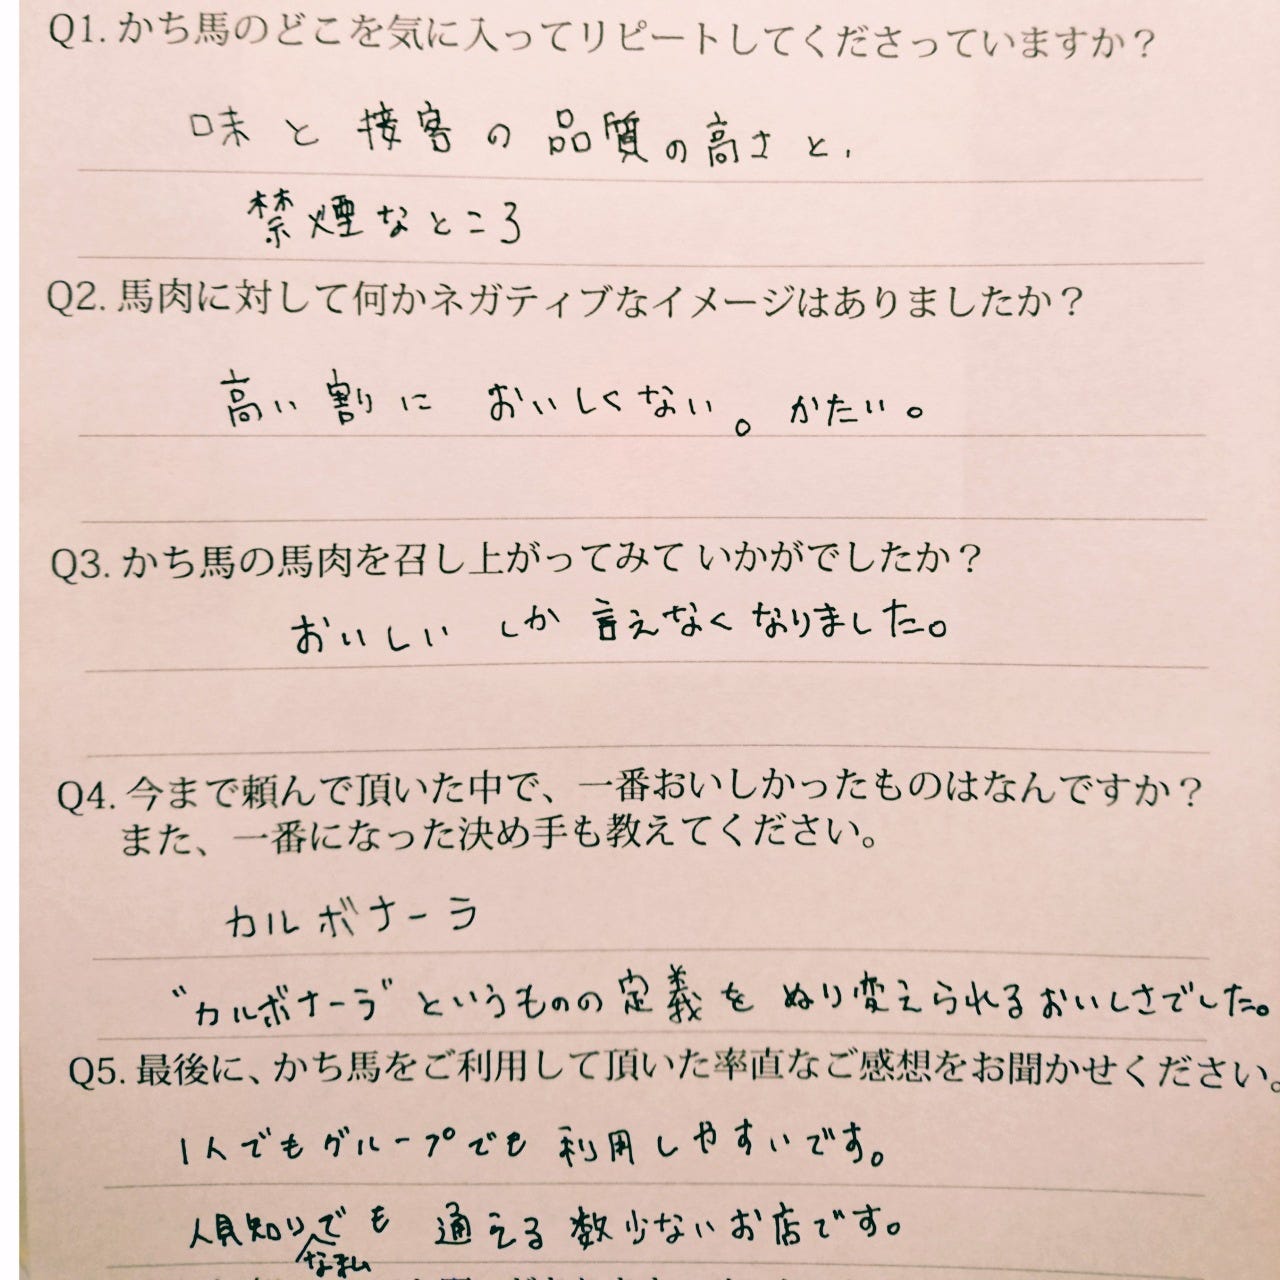 Q1. かち馬のどこを気に入ってリピートしてくださっていますか？
味と接客の品質の高さと、
禁煙なところ
Q2. 馬肉に対して何かネガティブなイメージはありましたか？
高い割に おいしくない。かたい。
Q3. かち馬の馬肉を召し上がってみていかがでしたか？
おいしい しか 言えなくなりました。
Q4. 今まで頼んで頂いた中で、一番おいしかったものはなんですか？
また、一番になった決め手も教えてください。
カルボナーラ
"カルボナーラ"というものの定義を ぬり変えられるおいしさでした。
Q5. 最後に、かち馬をご利用して頂いた率直なご感想をお聞かせください。
1人でもグループでも 利用しやすいです。
人見知りでも 通える数少ないお店です。
な私